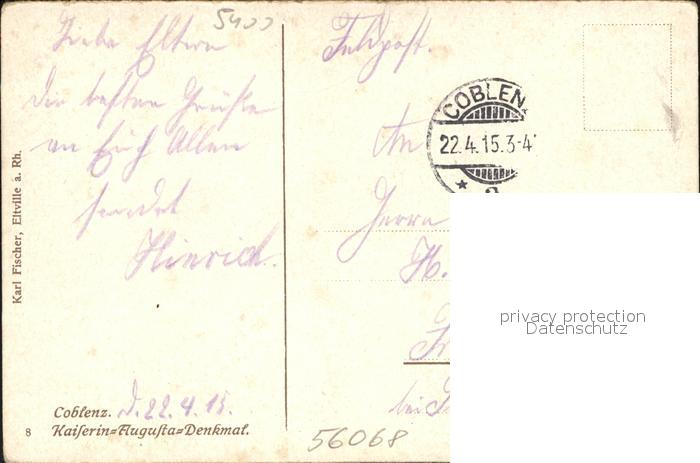 5400
Liebe Eltern
die besten Grüße
an Euch Allen
sendet
Hinrich.
Karl Fischer, Eltville a. Rh.
Coblenz. d. 22. 4. 15.
8 Kaiserin=Augusta=Denkmal.
Feldpost.
COBLEN
22.4.15.3-4
An
Herrn
H.
bei
56068
privacy protection
Datenschutz